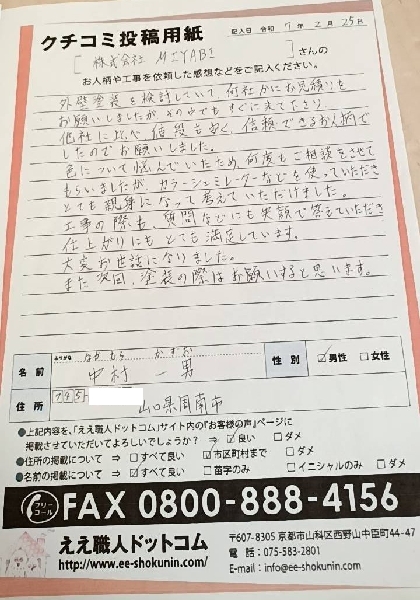 クチコミ投稿用紙
記入日 令和 7年 2月 25日
[ 株式会社 MIYABI ]さんの
お人柄や工事を依頼した感想などをご記入ください。
外壁塗装を検討していて何社かにお見積りを
お願いしましたが、その中でもすぐに来て下さり
他社に比べ値段も安く、信頼できるお人柄で
したのでお願いしました。
色について悩んでいたため、何度もご相談をさせて
もらいましたが、カラーシュミレーターなどを使っていただき
とても親身になって考えていただけました。
工事の際も、質問などにも笑顔で答えていただき
仕上がりにもとても満足しています。
大変お世話になりました。
また次回、塗装の際はお願いすると思います。
ふりがな なかむら かずお
名前 中村 一男
性別 ☑男性 □女性
住所 745 山口県周南市
●上記内容を、「ええ職人ドットコム」サイト内の『お客様の声』ページに
掲載させていただいてよろしいでしょうか? ⇒ ☑良い □ダメ
●住所の掲載について ⇒ □すべて良い ☑市区町村まで □ダメ
●名前の掲載について ⇒ ☑すべて良い □苗字のみ □イニシャルのみ □ダメ
フリーコール
FAX 0800-888-4156
ええ職人ドットコム
http://www.ee-shokunin.com/
〒607-8305 京都市山科区西野山中臣町44-47
電話:075-583-2801
E-mail:info@ee-shokunin.com